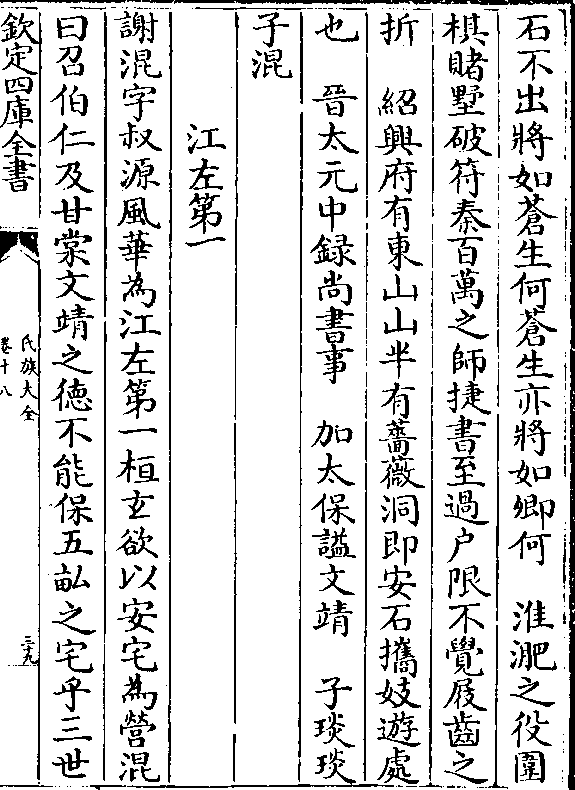 石不出將如蒼生何蒼生亦將如卿何　淮淝之役圍
棋賭墅破符秦百萬之師捷書至過户限不覺屐齒之
折　紹興府有東山山半有薔薇洞即安石攜妓遊處
也　晉太元中録尚書事　加太保諡文靖　子琰琰
子混
江左第一
謝混字叔源風華為江左第一桓玄欲以安宅為營混
曰召伯仁及甘棠文靖之德不能保五畝之宅乎三世
欽定四庫全書
氏族大全
卷十八
三十九